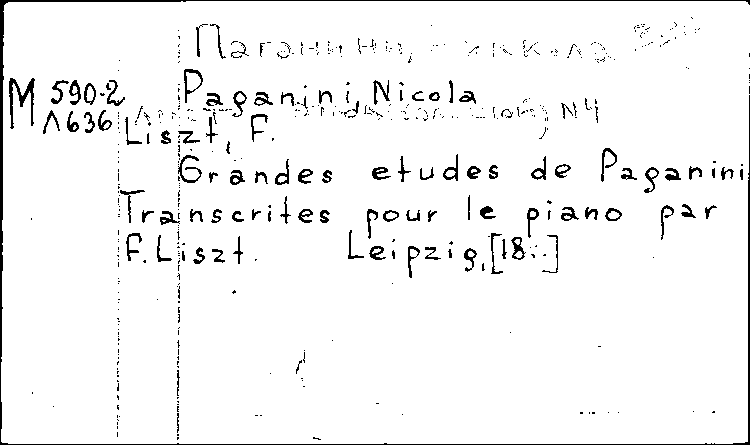 Паганини, Никола
Paganini, Nicola
М 590-2
Л636
N4
Liszt, F.
Grandes etudes de Paganini
Transcrites pour le piano par
F. Liszt. Leipzig, [18..]